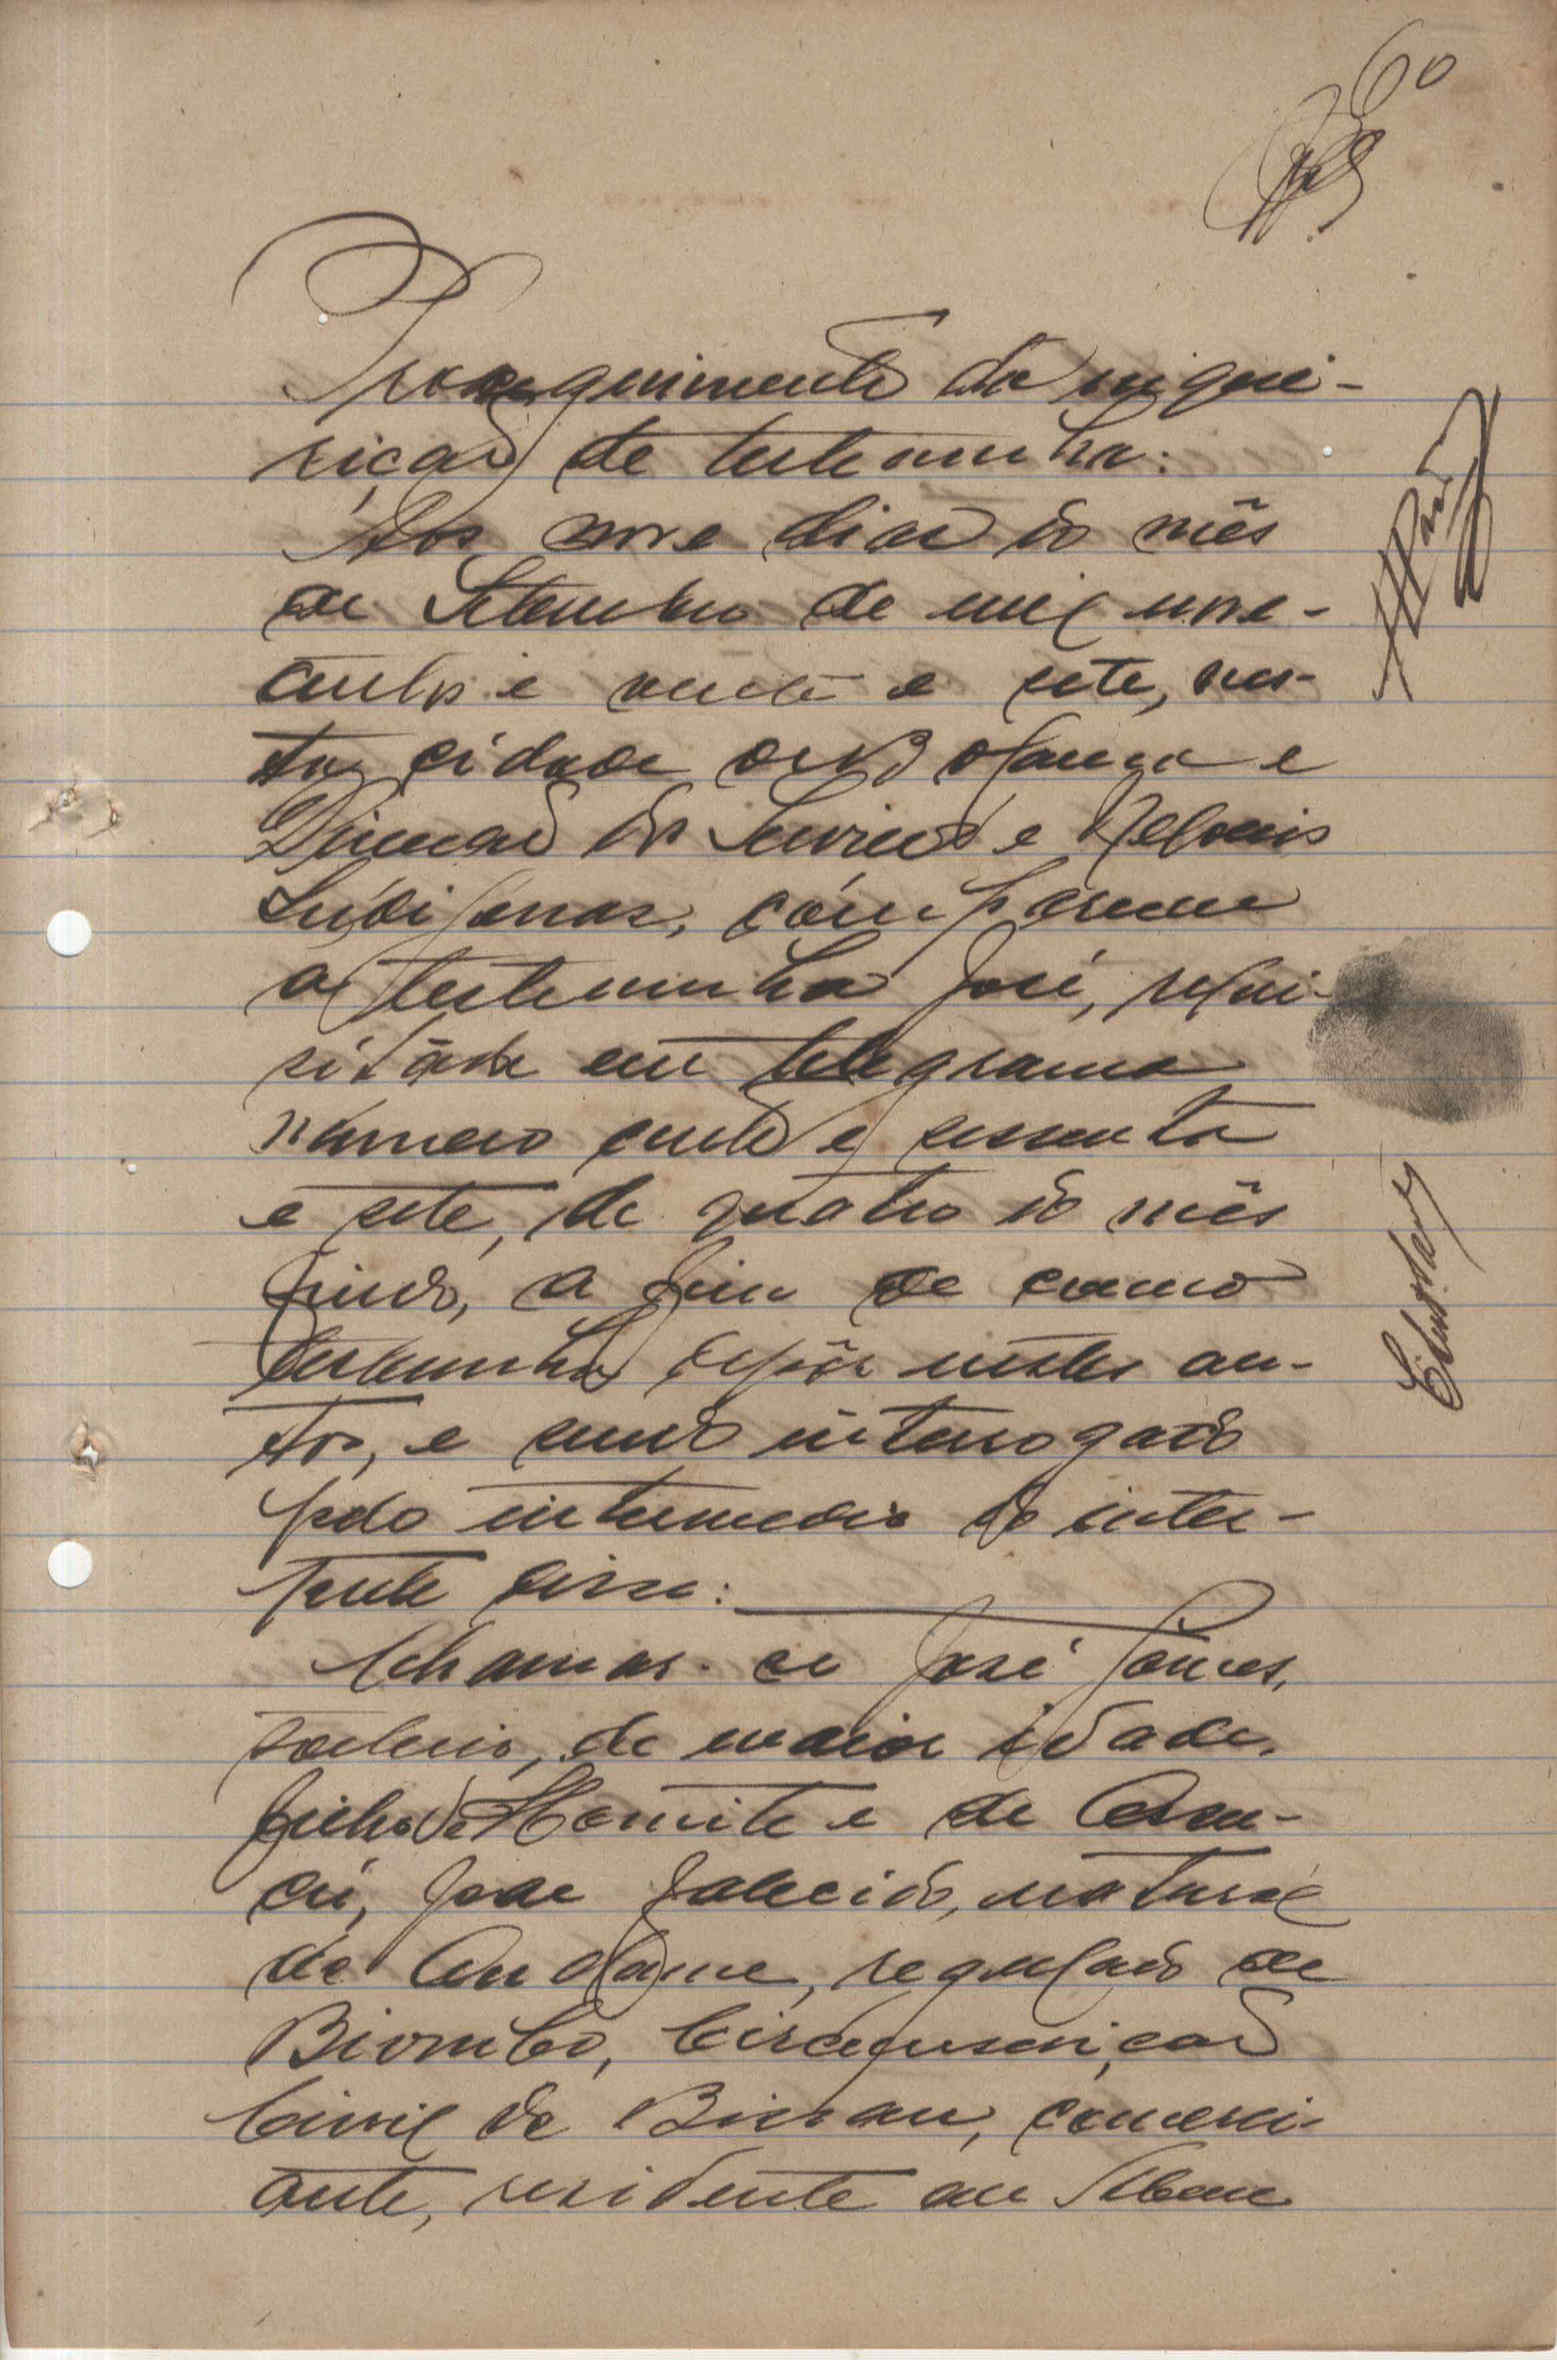 60
Proseguimento da inqui-
rição de testemunha:
Aos nove dias do mês
de Setembro de mil nove-
centos e vinte e sete, nes-
ta cidade de Bolama e
Direcção dos Serviços e Negocios
Indigenas, compareceu
a testemunha José, requi-
sitada em telegrama
número cento e sessenta
e sete, de quatro do mês
findo, a fim de como
testemunha depôr nestes au-
tos, e sendo interrogado
pelo intermedio do inter-
prete disse:
Chamar-se José Gomes,
solteiro, de maior idade,
filho de e de
cú, já falecido, natural
de, regulado de
Biombo, Circunscrição
Civil de Bissau, comerci-
ante, residente em